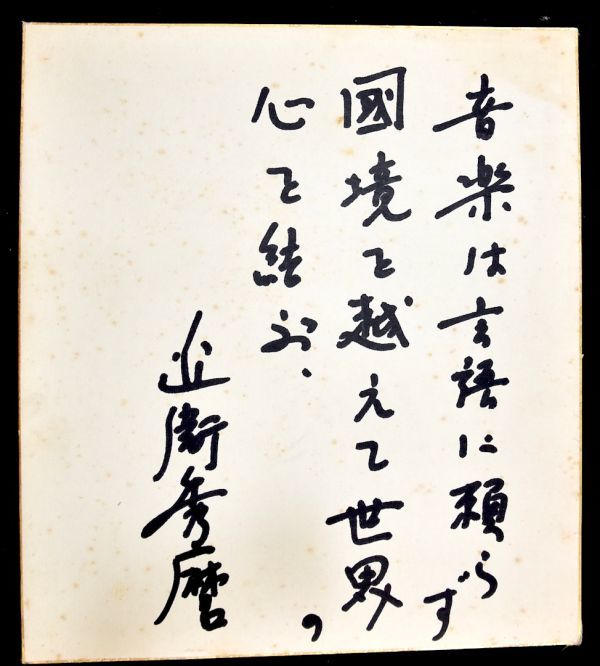 音楽は言語に頼らず
國境を越えて世界の
心を結ぶ、
近衛秀麿